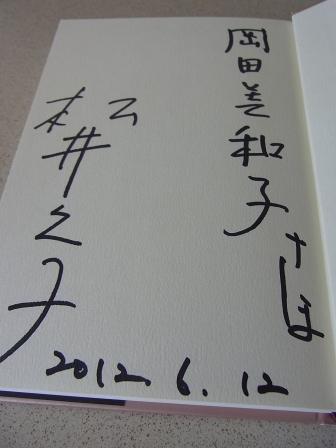 岡田美和子さま
松井久子
2012.6.12